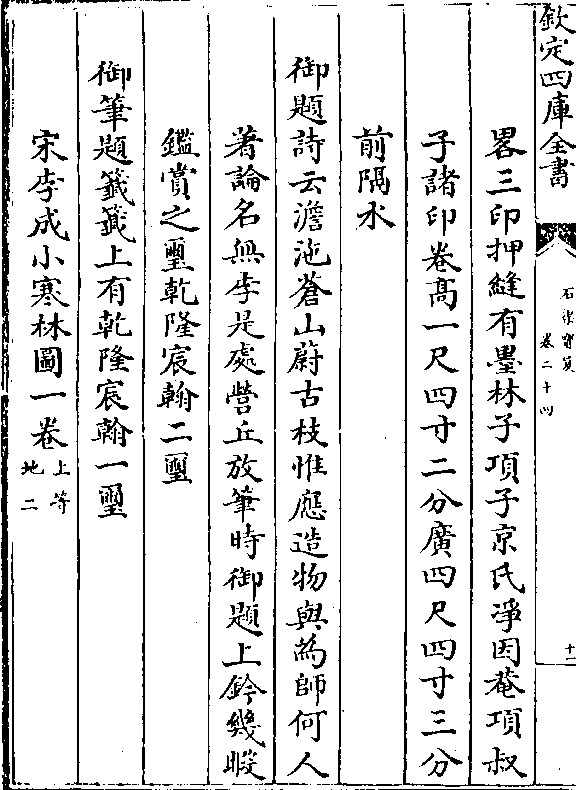 欽定四庫全書
石渠寳笈
卷二十四
十二
畧三印押縫有墨林子項子京氏淨因菴項叔
子諸印卷髙一尺四寸二分廣四尺四寸三分
前隔水
御題詩云澹沲蒼山蔚古枝惟應造物與為師何人
著論名無李是處營丘放筆時御題上鈐幾暇
鑑賞之璽乾隆宸翰二璽
御筆題籤籤上有乾隆宸翰一璽
宋李成小寒林圖一卷 上等 地二